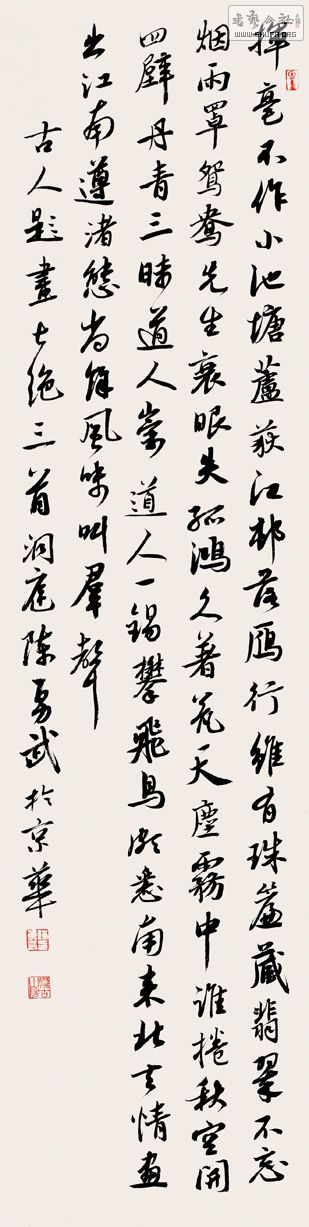 揮毫不作小池塘蘆荻江邨落鴈行雖有珠簾藏翡翠不忘
烟雨罩鴛鴦先生衰眼失孤鴻久著荒天塵霧中誰捲秋空開
四壁丹青三昧道人崇道人一錫攀飛鳥頗悉南来北去情画
出江南遵渚態尚餘風味叫羣聲
古人題畫七絕三首洞庭陳勇武於京華